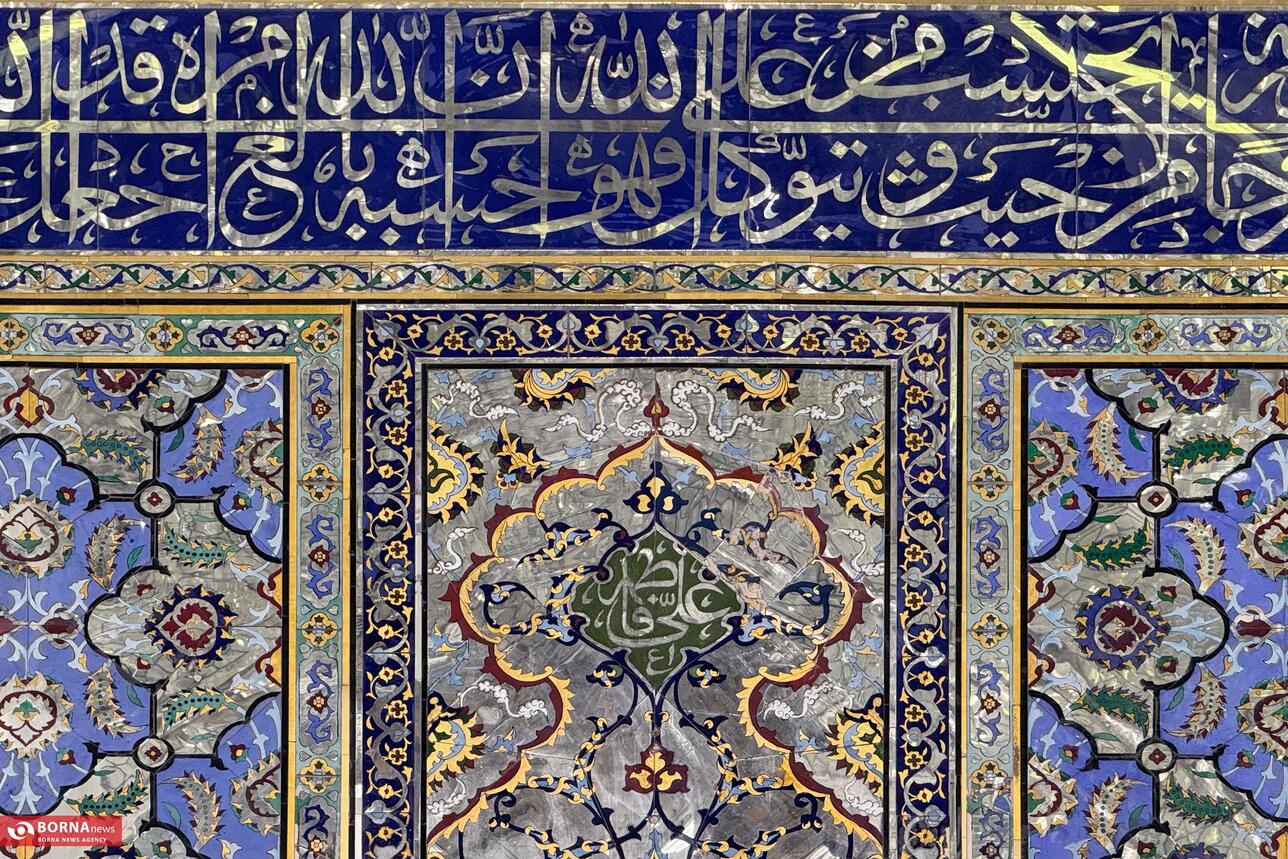 من حيث لا يحتسب ومن يتوكل على الله فهو حسبه ان الله بالغ امره قد جعل
علی
BORNA news
BORNA NEWS AGENCY